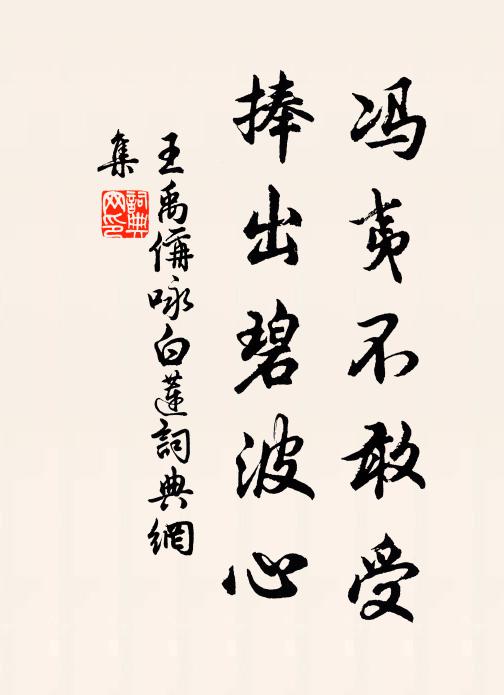 冯夷不敢受
捧出碧波心
王禹偁咏白莲詞典網
集
詞典网印